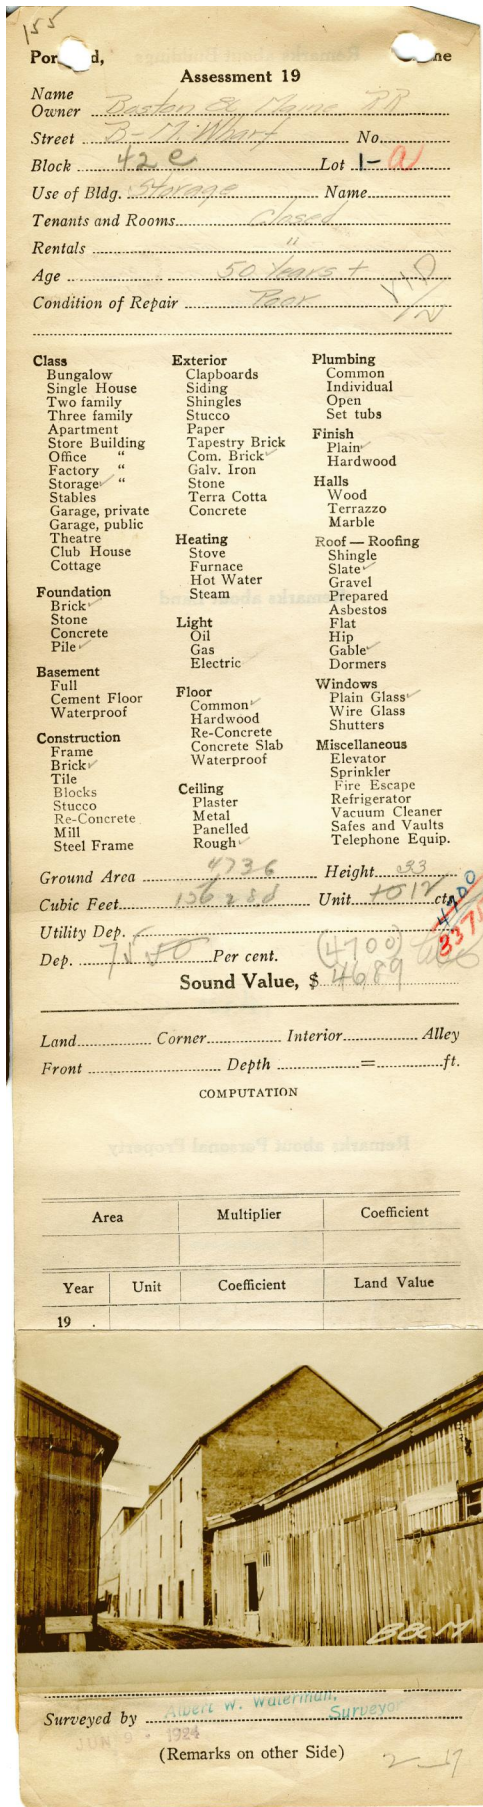 155
Por d, ne
Assessment 19
Name
Owner Boston & Maine RR
Street B-M. Wharf No.
Block 42 e Lot 1-a
Use of Bldg. Storage Name
Tenants and Rooms Closed
Rentals "
Age 50 Years +
Condition of Repair Poor
Class
Bungalow
Single House
Two family
Three family
Apartment
Store Building
Office "
Factory "
Storage ✓ "
Stables
Garage, private
Garage, public
Theatre
Club House
Cottage
Foundation
Brick ✓
Stone
Concrete
Pile ✓
Basement
Full
Cement Floor
Waterproof
Construction
Frame
Brick ✓
Tile
Blocks
Stucco
Re-Concrete
Mill
Steel Frame
Exterior
Clapboards
Siding
Shingles
Stucco
Paper
Tapestry Brick
Com. Brick ✓
Galv. Iron
Stone
Terra Cotta
Concrete
Heating
Stove
Furnace
Hot Water
Steam
Light
Oil
Gas
Electric
Floor
Common ✓
Hardwood
Re-Concrete
Concrete Slab
Waterproof
Ceiling
Plaster
Metal
Panelled
Rough ✓
Plumbing
Common
Individual
Open
Set tubs
Finish
Plain ✓
Hardwood
Halls
Wood
Terrazzo
Marble
Roof — Roofing
Shingle
Slate ✓
Gravel
Prepared
Asbestos
Flat
Hip
Gable ✓
Dormers
Windows
Plain Glass ✓
Wire Glass
Shutters
Miscellaneous
Elevator
Sprinkler
Fire Escape
Refrigerator
Vacuum Cleaner
Safes and Vaults
Telephone Equip.
Ground Area 4736 Height 33
Cubic Feet 156288 Unit 10 12 cts.
4700
3375
Utility Dep.
Dep. 75 50 Per cent. (4700)
Sound Value, $ 4689
Land Corner Interior Alley
Front Depth = ft.
COMPUTATION
Area Multiplier Coefficient
Year Unit Coefficient Land Value
19 .
B&M
Surveyed by Albert W. Waterman,
Surveyor
JUN 9 - 1924
(Remarks on other Side)
2-17